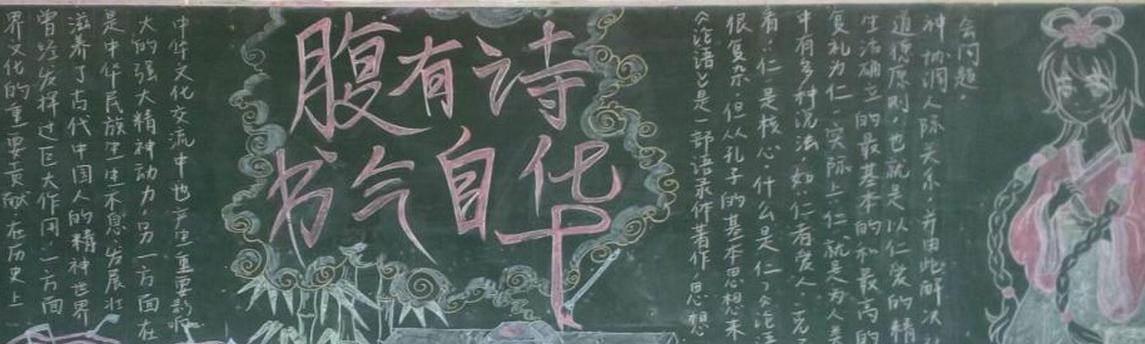 腹有诗
书气自华
会问题。
种协调人际关系，并由此解决社
道德原则，也就是以仁爱的精
生活确立的最基本的和最高的
复礼为仁，实际上，仁就是为人类
中有多种说法，如，仁者爱人，克己
看，仁是核心。什么是仁？《论语》
很复杂，但从孔子的基本思想来
《论语》是一部语录作著作，思想
中华文化交流中也产生重要影响
大的强大精神动力，另一方面在
是中华民族生生不息，发展壮
滋养了古代中国人的精神世界
曾经发挥过巨大作用，一方面
界文化的重要贡献，在历史上